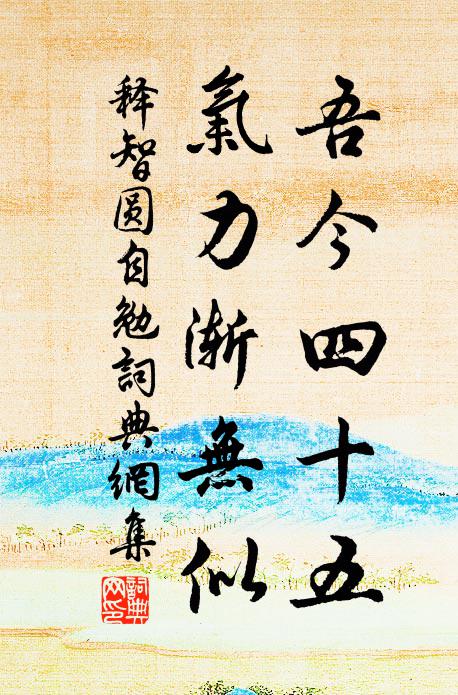 吾今四十五
氣力漸無似
释智圆自勉詞典網集
詞典网印